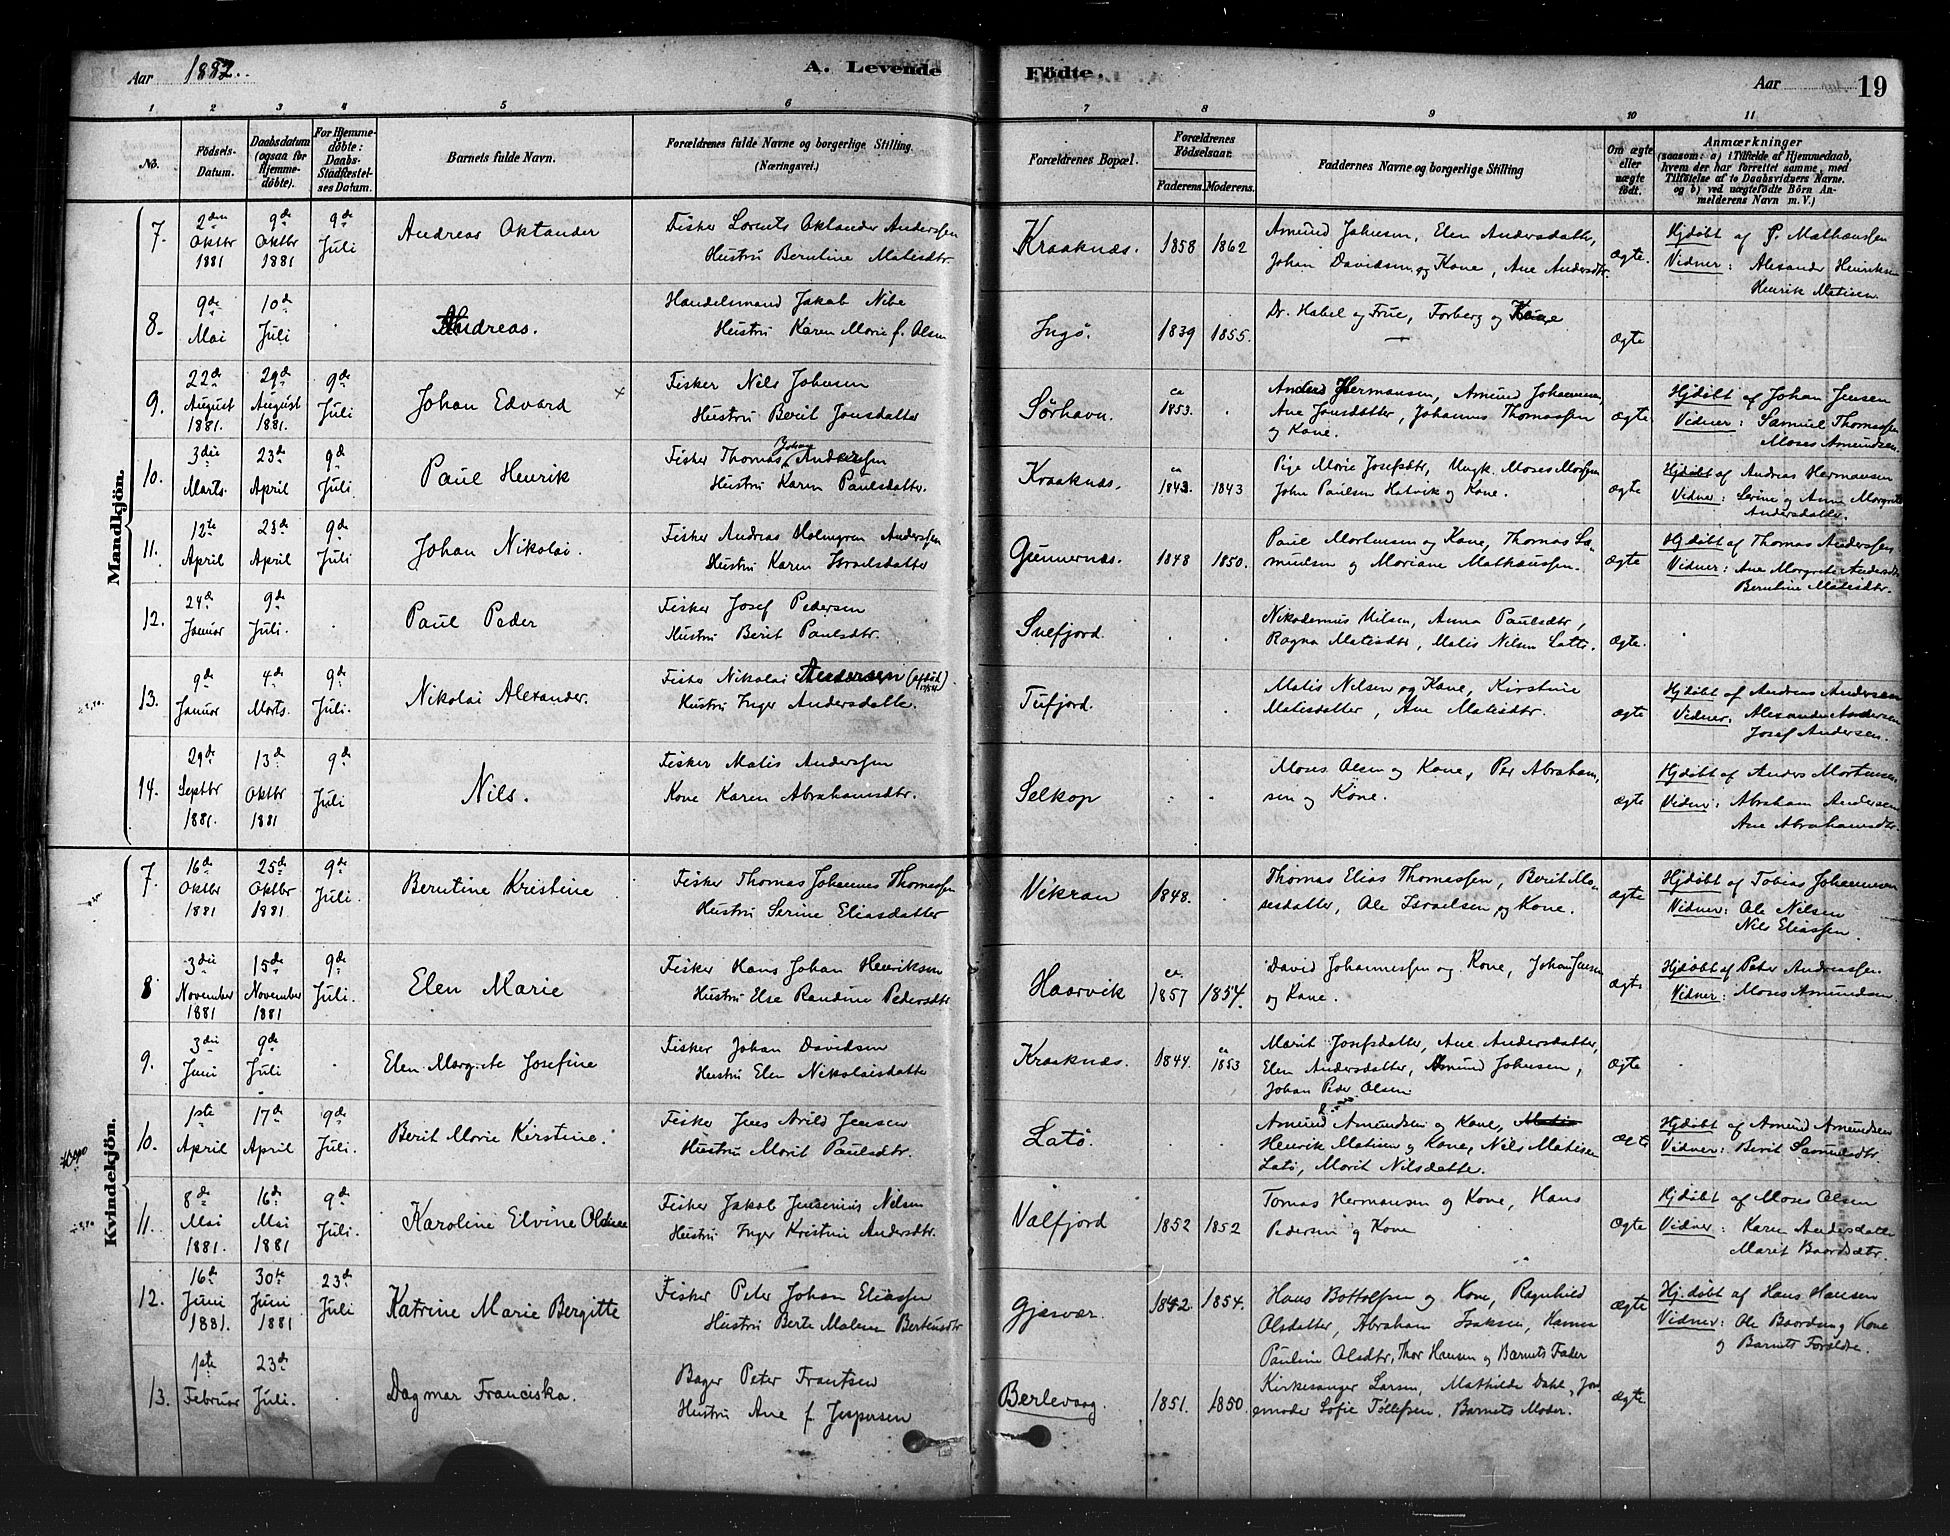 Aar 1882.
A. Levende Fødte.
Aar 19
1 2 3 4 5 6 7 8 9 10 11
No.
Fødsels-Datum.
Daabsdatum (ogsaa for Hjemmedøbte).
For Hjemmedøbte: Daabs-Stadfæstelses Datum.
Barnets fulde Navn.
Forældrenes fulde Navne og borgerlige Stilling. (Næringsvei.)
Forældrenes Bopæl.
Forældrenes Fødselsaar.
Faderens. Moderens.
Faddernes Navne og borgerlige Stilling
Om ægte eller uægte født.
Anmærkninger
(saasom: a) i Tilfælde af Hjemmedaab, hvem der har forrettet samme, med Tilføielse af to Daabsvidners Navne. og b) ved uægtefødte Børn Anmelderens Navn m. V.)
Mandkjön.
7. 2den Oktbr 1881 9de Oktbr 1881 9de Juli
Andreas Oktander
Fisker Lorents Oklander Anderssen
Hustru Berntine Matisdtr.
Kraaknæs. 1858 1862
Amund Johnsen, Elen Andersdatter,
Johan Davidsen og Kone, Ane Andersdtr.
ægte.
Hjdøbt af P. Mathæussen
Vidner: Alexander Henriksen
Henrik Matisen.
8. 9de Mai 10de Juli .
Andreas.
Handelsmand Jakob Nibe
Hustru Karen Marie f. Olsen
Ingø. 1839 1855.
Dr. Habel og Frue, Forberg og Kone
ægte
9. 22de August 1881. 29de August 1881. 9de Juli
Johan Edvard ×
Fisker Nils Johnsen
Hustru Berit Jonsdatter
Sørhavn. ca 1853. .
Anders Hermansen, Amund Johannesen,
Ane Jonsdatter, Johannes Thomassen
og Kone.
ægte
Hjdøbt af Johan Jensen
Vidner: Samuel Thomassen
Moses Amundsen
10. 3die Marts. 23de April 9de Juli.
Paul Henrik
Fisker Thomas Johan Anderssen
Hustru Karen Paulsdatter.
Kraaknæs. ca 1843. 1843
Pige Marie Josefsdtr, Ungk. Moses
John Paulsen Hatvik og Kone.
ægte
Hjdøbt af Andreas Hermansen
Vidner: Serine og Anne Margrete
Andersdatter.
11. 12te April 23de April 9de Juli
Johan Nikolai.
Fisker Andreas Holmgren Anderssen
Hustru Karen Israelsdatter
Gunnernæs. 1848 1850.
Paul Mortensen og Kone, Thomas Sa-
muelsen og Mariane Mathæussen.
ægte
Hjdøbt af Thomas Anderssen
Vidner: Ane Margrete Andersdtr
Berntine Matisdtr.
12. 24de Januar 9de Juli. .
Paul Peder
Fisker Josef Pedersen
Hustru Berit Paulsdtr.
Snefjord. . .
Nikodemus Nilsen, Anna Paulsdtr,
Ragna Matisdtr, Matis Nilsen Latø.
ægte. .
13. 9de Januar 4de Marts. 9de Juli.
Nikolai Alexander.
Fisker Nikolai Andersen (afdød)
Hustru Inger Andersdatte.
Tufjord. . .
Matis Nilsen og Kone, Kirstine
Matisdatter, Ane Matisdtr.
ægte
Hjdøbt af Andreas Andersen
Vidner: Alexander Andersen
Josef Andersen.
14. 29de Septbr 1881. 13de Oktbr 1881 9de Juli
Nils.
Fisker Matis Anderssen
Kone Karen Abrahamsdtr.
Selkop . .
Moses Olsen og Kone, Per Abraham,
sen og Kone.
ægte
Hjdøbt af Anders Mortensen
Vidner: Abraham Andersen
Ane Abrahamsdtr.
Kvindekjön.
7. 16de Oktbr 1881 25de Oktbr 1881 9de Juli.
Berntine Kristine
Fisker Thomas Johannes Thomassen
Hustru Serine Eliasdatter
Vikran 1848. .
Thomas Elias Thomassen, Berit Mo-
sesdatter, Ole Israelsen og Kone.
ægte
Hjdøbt af Tobias Johannesen
Vidner: Ole Nilsen
Nils Eliassen.
8 3die November 1881 15de November 1881 9de Juli.
Elen Marie
Fisker Hans Johan Henriksen
Hustru Else Randine Pedersdtr
Haarvik ca 1857 1854.
David Johannessen og Kone, Johan Jensen
og Kone.
ægte
Hjdøbt af Peter Andreassen.
Vidner: Moses Amundsen
9. 3die Juni 9de Juli .
Elen Margrete Josefine
Fisker Johan Davidsen
Hustru Elen Nikolaisdatte
Kraaknæs. 1844 ca 1853
Marit Josefsdatter, Ane Andersdatter,
Elen Andersdatter, Amund Johnsen,
Johan Peder Olsen.
ægte .
10. 1ste April 17de April 9de Juli.
Berit Marie Kirstine.
Fisker Jens Arild Jensen
Hustru Marit Paulsdtr.
Latø. . .
Amund Amundsen og Kone, Matis
Henrik Matisen og Kone, Nils Matisen
Latø, Marit Nilsdatte.
ægte
Hjdøbt af Amund Amundsen
Vidner: Berit Samuelsdtr
11. 8de Mai 1881. 16de Mai 1881 9de Juli.
Karoline Elvine Oldine
Fisker Jakob Jensenius Nilsen
Hustru Inger Kristine Andersdtr.
Valfjord 1852 1852
Tomas Hermansen og Kone, Hans
Pedersen og Kone
ægte
Hjdøbt af Moses Olsen
Vidner: Karen Andersdatte
Marit Baardsdtr.
12. 16de Juni 1881. 30te Juni 1881 23de Juli
Katrine Marie Bergitte
Fisker Peter Johan Eliassen
Hustru Berte Malene Berteusdtr
Gjæsvær. 1842. 1854.
Hans Bottolfsen og Kone, Ragnhild
Olsdatter, Abraham Isaksen, Hanna
Pauline Olsdtr, Thor Hansen og Barnets Fader
ægte
Hj.døbt af Hans Hansen
Vidner: Ole Baardsen og Kone
og Barnets Forældre.
13. 1ste Februar 23de Juli. .
Dagmar Franciska.
Bager Peter Frantsen
Hustru Ane f. Jespersen
Berlevaag. 1851. 1850.
Kirkesanger Larsen, Mathilde Dahl, Jord
emoder Sofie Tollefsen. Barnets Moder.
ægte.